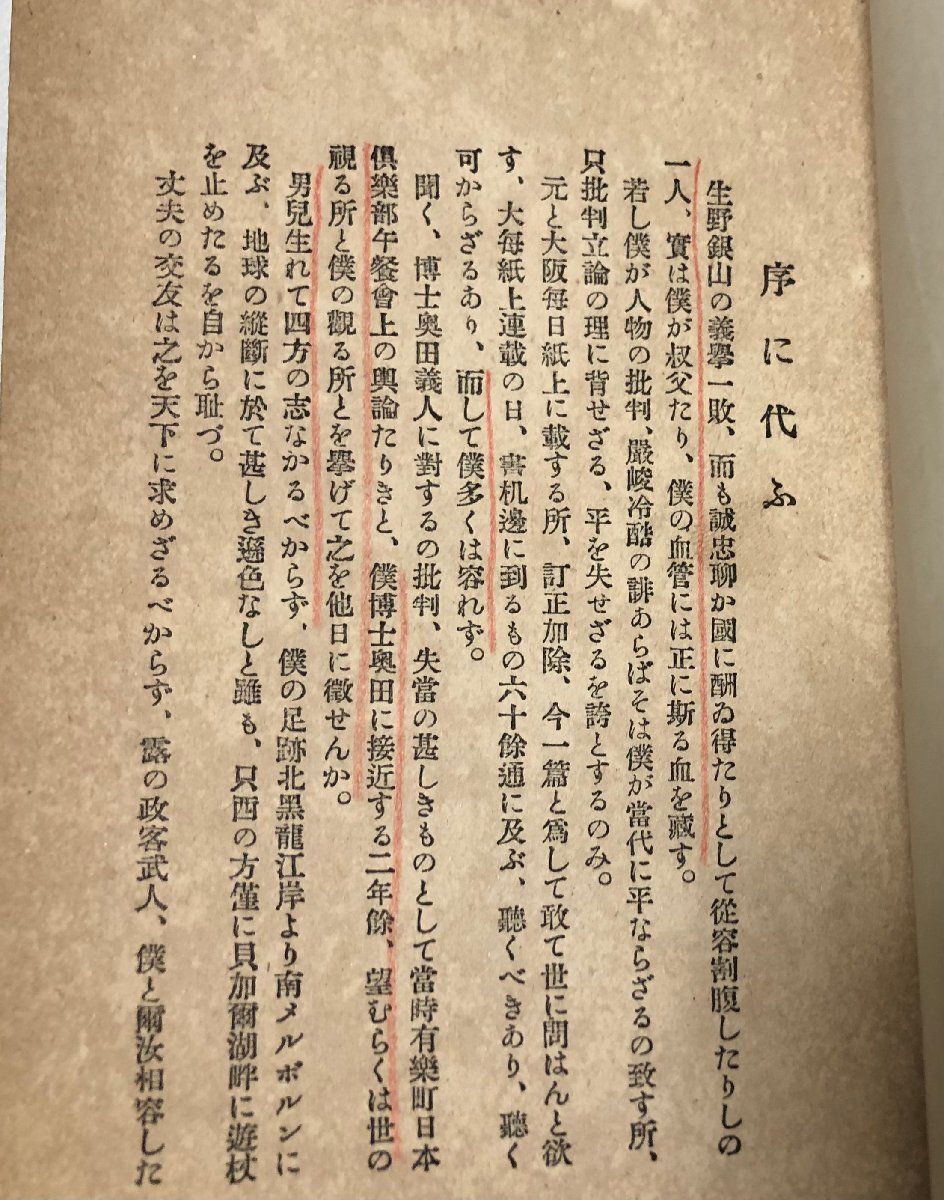 序に代ふ
生野銀山の義擧一敗、而も誠忠聊か國に酬ゐ得たりとして從容割腹したりしの
一人、實は僕が叔父たり、僕の血管には正に斯る血を藏す。
若し僕が人物の批判、嚴峻冷酷の誹あらばそは僕が當代に平ならざるの致す所、
只批判立論の理に背せざる、平を失せざるを誇とするのみ。
元と大阪毎日紙上に載する所、訂正加除、今一篇と爲して敢て世に問はんと欲
す、大毎紙上連載の日、書机邊に到るもの六十餘通に及ぶ、聽くべきあり、聽く
可からざるあり、而して僕多くは容れず。
聞く、博士奧田義人に對するの批判、失當の甚しきものとして當時有樂町日本
倶樂部午餐會上の輿論たりきと、僕博士奧田に接近する二年餘、望むらくは世の
視る所と僕の觀る所とを擧げて之を他日に徵せんか。
男兒生れて四方の志なかるべからず、僕の足跡北黑龍江岸より南メルボルンに
及ぶ、地球の縱斷に於て甚しき遜色なしと雖も、只西の方僅に貝加爾湖畔に遊杖
を止めたるを自から耻づ。
丈夫の交友は之を天下に求めざるべからず、露の政客武人、僕と爾汝相容した